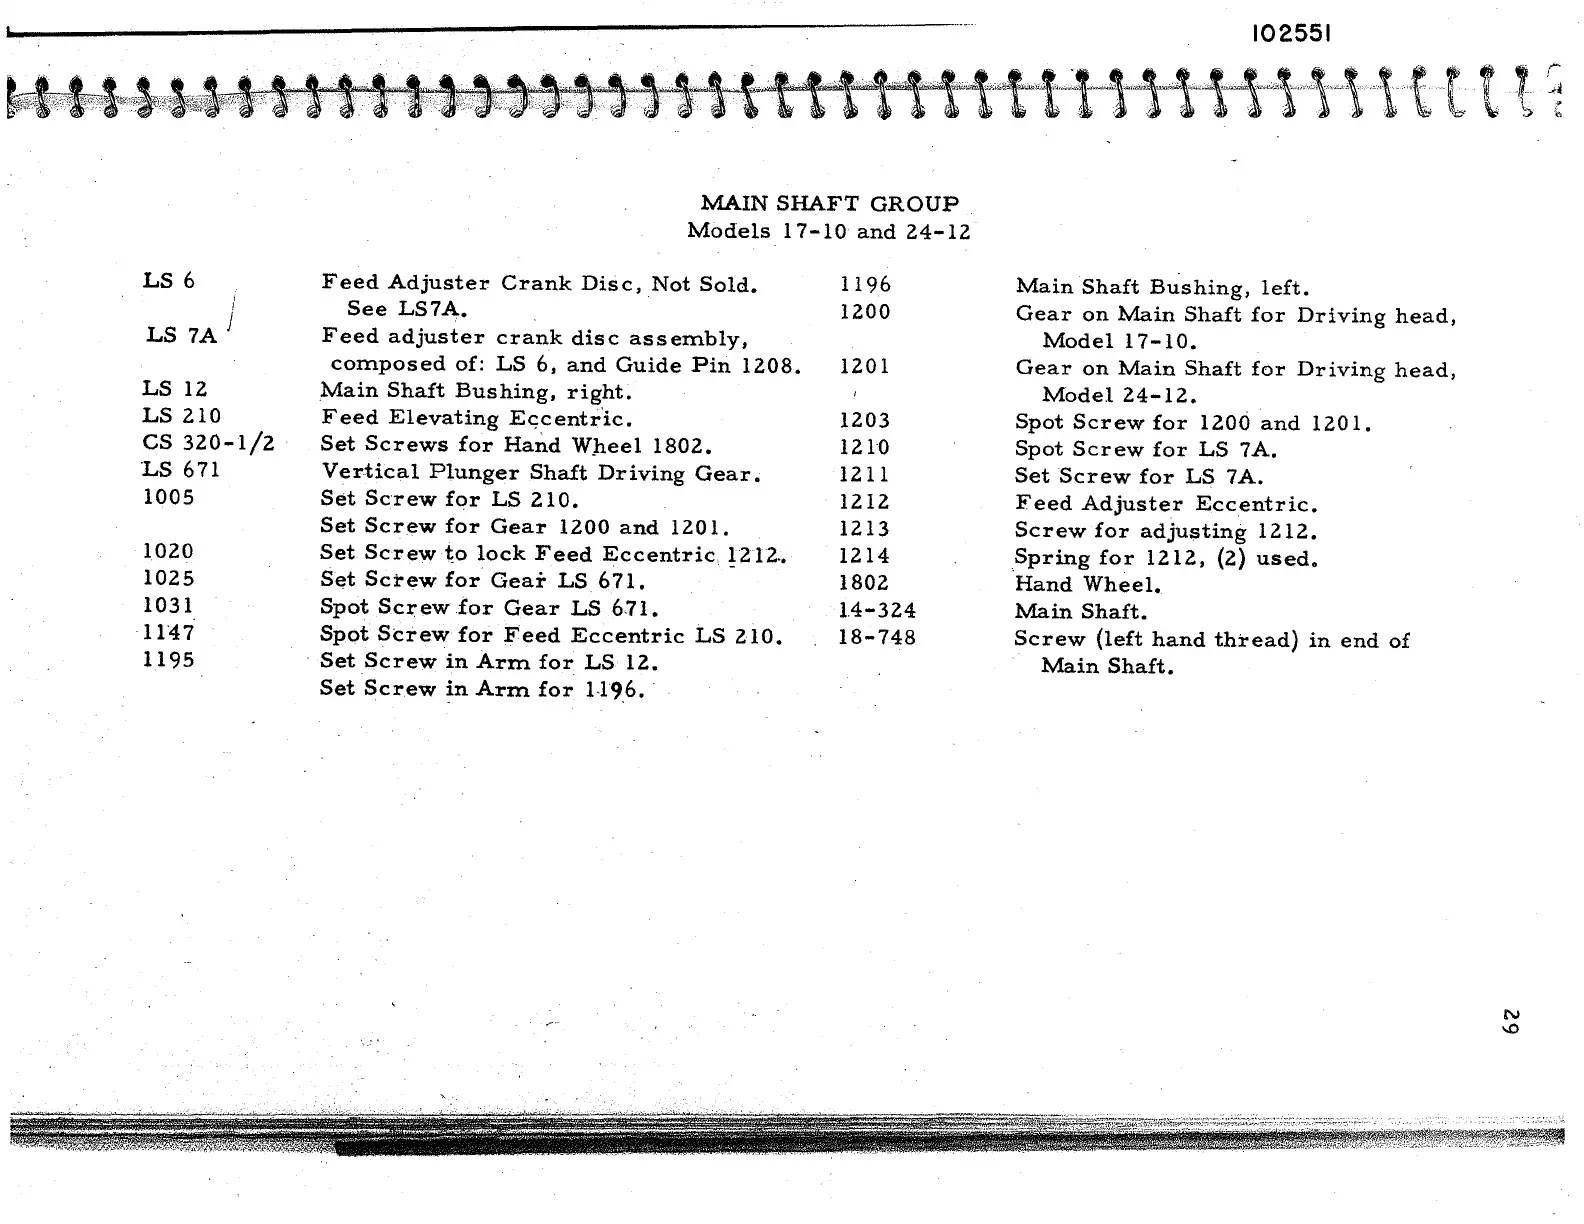 102551
MAIN SHAFT GROUP
Models 17-10 and 24-12
LS 6 Feed Adjuster Crank Disc, Not Sold.
See LS7A.
LS 7A Feed adjuster crank disc assembly,
composed of: LS 6, and Guide Pin 1208.
LS 12 Main Shaft Bushing, right.
LS 210 Feed Elevating Eccentric.
CS 320-1/2 Set Screws for Hand Wheel 1802.
LS 671 Vertical Plunger Shaft Driving Gear.
1005 Set Screw for LS 210.
Set Screw for Gear 1200 and 1201.
1020 Set Screw to lock Feed Eccentric 1212.
1025 Set Screw for Gear LS 671.
1031 Spot Screw for Gear LS 671.
1147 Spot Screw for Feed Eccentric LS 210.
1195 Set Screw in Arm for LS 12.
Set Screw in Arm for 1196.
1196 Main Shaft Bushing, left.
1200 Gear on Main Shaft for Driving head,
Model 17-10.
1201 Gear on Main Shaft for Driving head,
Model 24-12.
1203 Spot Screw for 1200 and 1201.
1210 Spot Screw for LS 7A.
1211 Set Screw for LS 7A.
1212 Feed Adjuster Eccentric.
1213 Screw for adjusting 1212.
1214 Spring for 1212, (2) used.
1802 Hand Wheel.
14-324 Main Shaft.
18-748 Screw (left hand thread) in end of
Main Shaft.
29